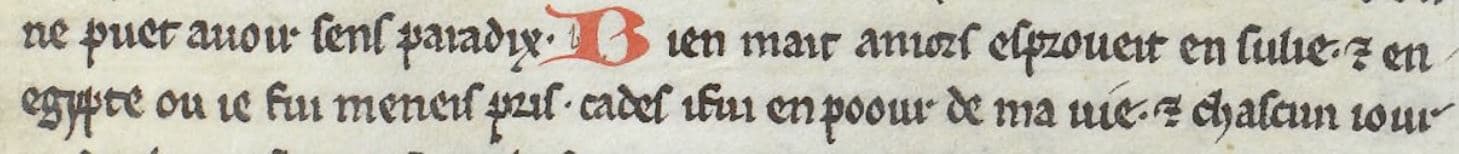 ne puet auoir sens paradix. Bien mait amors esproueit en sulie. ⁊ en
egypte ou ie fui meneis pris. cades ifui en poour de ma uie. ⁊ chascun iour